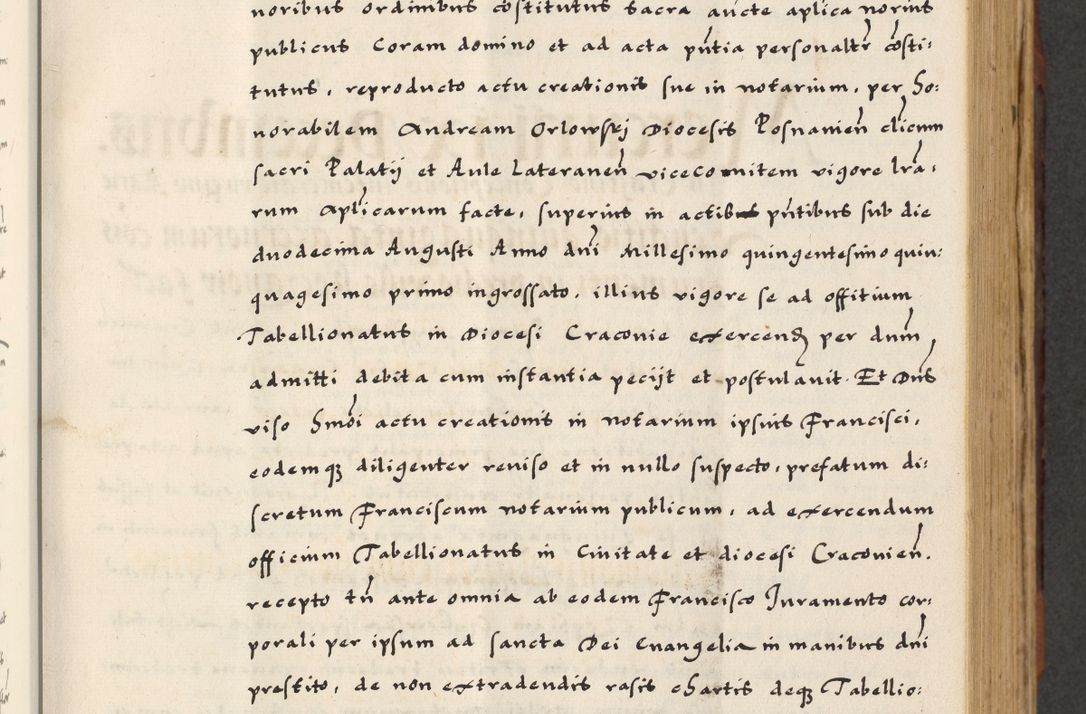 noribus ordinibus cōstitutus sacra aucte aplica norius
publicus Coram domino et ad acta pn̄tia personalt͛ cōsti:
tutus, reproducto actu creationis sue in notarium, per Ho:
norabilem Andream Orlowskj Diocesis Posnanien̄ cl̄icum
sacri Palatij et Aule Lateranen̄ vicecomitem vigore lr̄a:
rum Apl̄icarum facte, superius in actibus pn̄tibus sub die
duodecima Augusti Anno dn̄i Millesimo quingentesimo quin:
quagesimo primo ingrossato, illius vigore se ad offitium
Tabellionatus in Diocesi Cracouie exercend̄ per dum̄
admitti debita cum instantia pecijt et postulauit. Et Dn̄s
viso Hm̄oi actu creationis in notarium ipsius Francisci,
eodemqȝ diligenter reuiso et in nullo suspecto, prefatum di:
scretum Franciscum notarium publicum, ad exercendum
officium Tabellionatus in Ciuitate et diocesi Cracouien̄.
recepto tn̄ ante omnia ab eodem Francisco Iuramento cor:
porali per ipsum ad sancta Dei Euangelia in manibus dn̄i
prestito, de non extradendis rasis chartis deqȝ Tabellio: